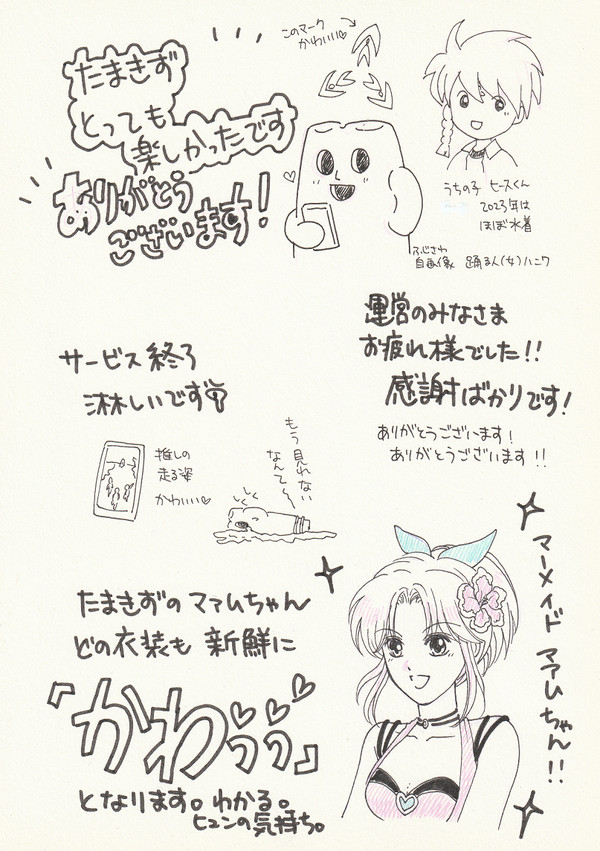 たまきず
とっても
楽しかったです
ありがとう
ございます!
このマーク
かわいい♡
うちの子 ヒースくん
2023年は
ほぼ水着
ふじさわ
自画像 踊るん(女)ハニワ
運営のみなさま
お疲れ様でした!!
感謝ばかりです!
ありがとうございます!
ありがとうございます!!
サービス終了
淋しいです
推しの
走る姿
かわいい♡
もう見れない
なんて〜
しくしく
マーメイド マァムちゃん!!
たまきずの マァムちゃん
どの衣装も 新鮮に
「かわぅぅ」
となります。わかる。
ヒュンの気持ち。